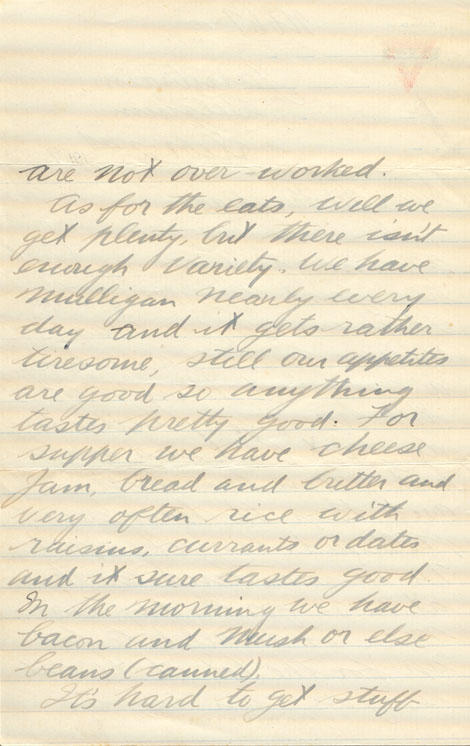 are not over-worked.
As for the eats, well we
get plenty, but there isn't
enough variety. We have
Mulligan nearly every
day and it gets rather
tiresome, still our appetites
are good so anything
tastes pretty good. For
supper we have cheese
Jam, bread and butter and
very often rice with
raisins, currants or dates
and it sure tastes good
In the morning we have
bacon and Mush or else
beans (canned).
It's hard to get stuff